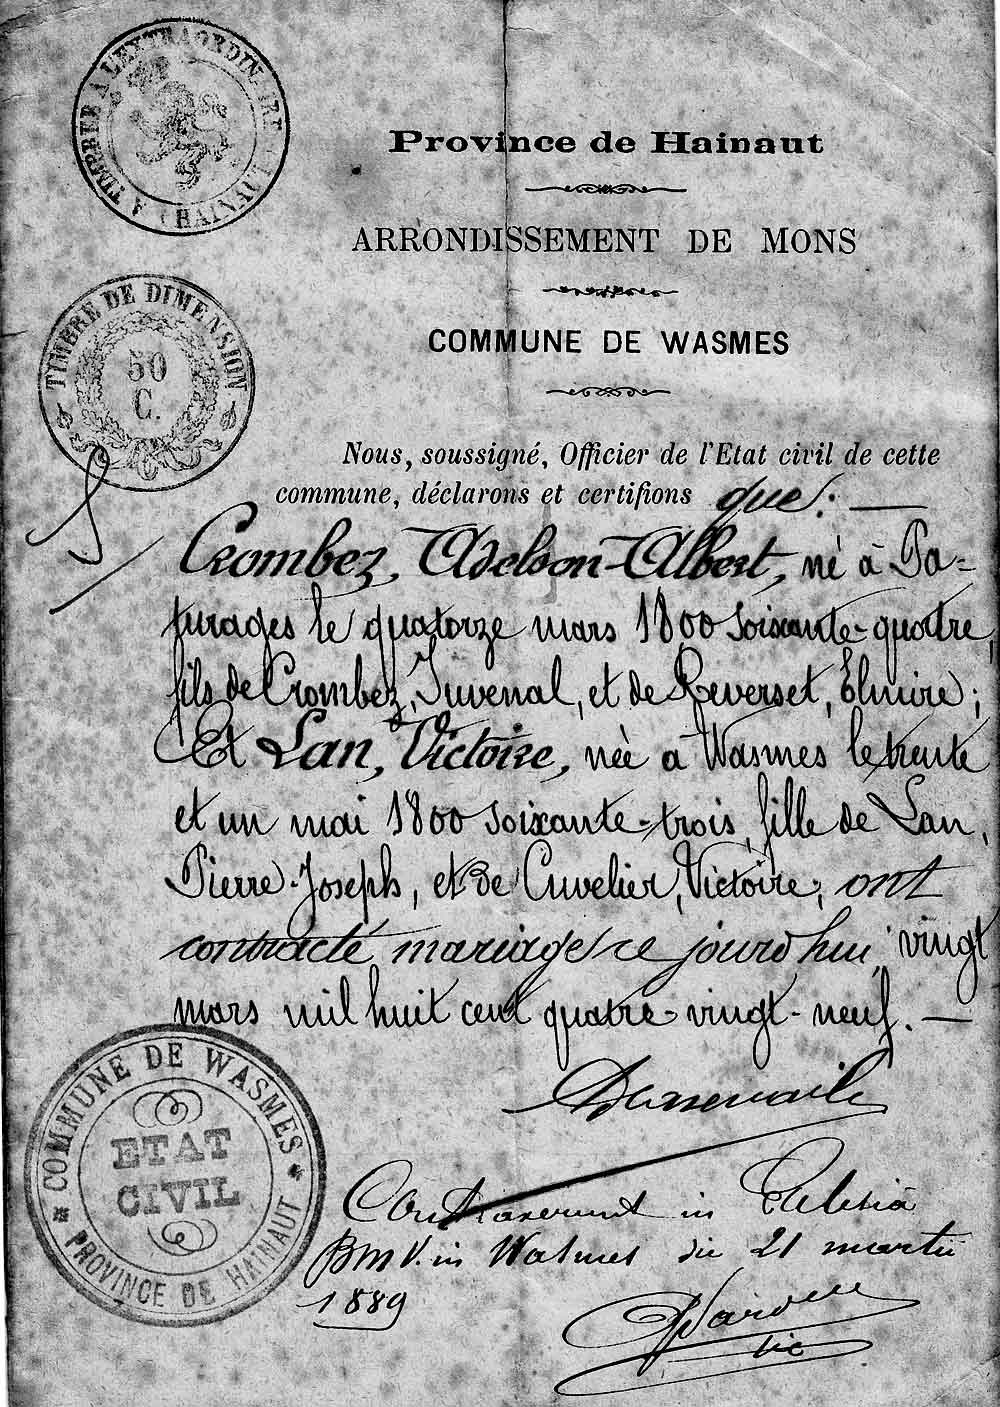 TIMBRÉ A L'EXTRAORDINAIRE
HAINAUT
Province de Hainaut
ARRONDISSEMENT DE MONS
COMMUNE DE WASMES
TIMBRE DE DIMENSION
50
C.
Nous, soussigné, Officier de l'Etat civil de cette
commune, déclarons et certifions que:
Crombez, Adelson-Albert, né à Pa-
turages le quatorze mars 1800 soixante-quatre,
fils de Crombez, Juvenal, et de Reverset, Elmire;
Et Lan, Victoire, née à Wasmes le trente
et un mai 1800 soixante-trois, fille de Lan,
Pierre-Joseph, et de Cuvelier, Victoire, ont
contracté mariage ce jourd'hui vingt
mars mil huit cent quatre-vingt-neuf. —
COMMUNE DE WASMES
ETAT
CIVIL
PROVINCE DE HAINAUT
Contraxerunt in Eclesia
BMV. in Wasmes die 21 martii
1889
vic